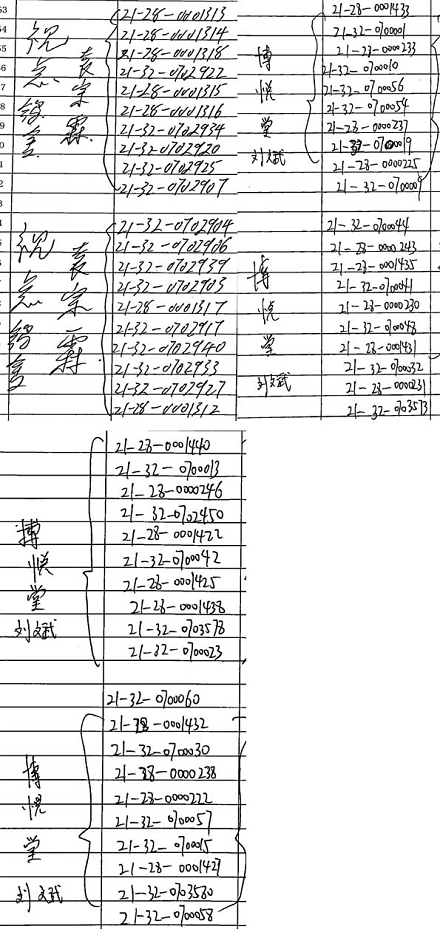 21-28-0001313
21-28-0001314
21-28-0001318
21-32-0702922
21-28-0001315
21-28-0001316
21-32-0702934
21-32-0702920
21-32-0702925
21-32-0702907
21-32-0702904
21-32-0702906
21-32-0702939
21-32-0702903
21-28-0001317
21-32-0702917
21-32-0702940
21-32-0702933
21-32-0702927
21-28-0001312
博
悦
堂
刘文斌
21-28-0001433
21-32-070001
21-28-0000233
21-32-0700010
21-32-0700056
21-32-0700054
21-28-0000237
21-32-0700019
21-28-0000225
21-32-0700009
博
悦
堂
刘文斌
21-32-0700044
21-28-0000243
21-28-0001435
21-32-0700041
21-28-0000230
21-32-0700048
21-28-0001431
21-32-0700032
21-28-0000231
21-32-0703573
博
悦
堂
刘文斌
21-28-0001440
21-32-0700013
21-28-0000246
21-32-0702450
21-28-0001422
21-32-0700042
21-28-0001425
21-28-0001438
21-32-0703578
21-32-0700023
博
悦
堂
刘文斌
21-32-0700060
21-28-0001432
21-32-0700030
21-28-0000238
21-28-0000222
21-32-0700057
21-32-0700015
21-28-0001427
21-32-0703580
21-32-0700058